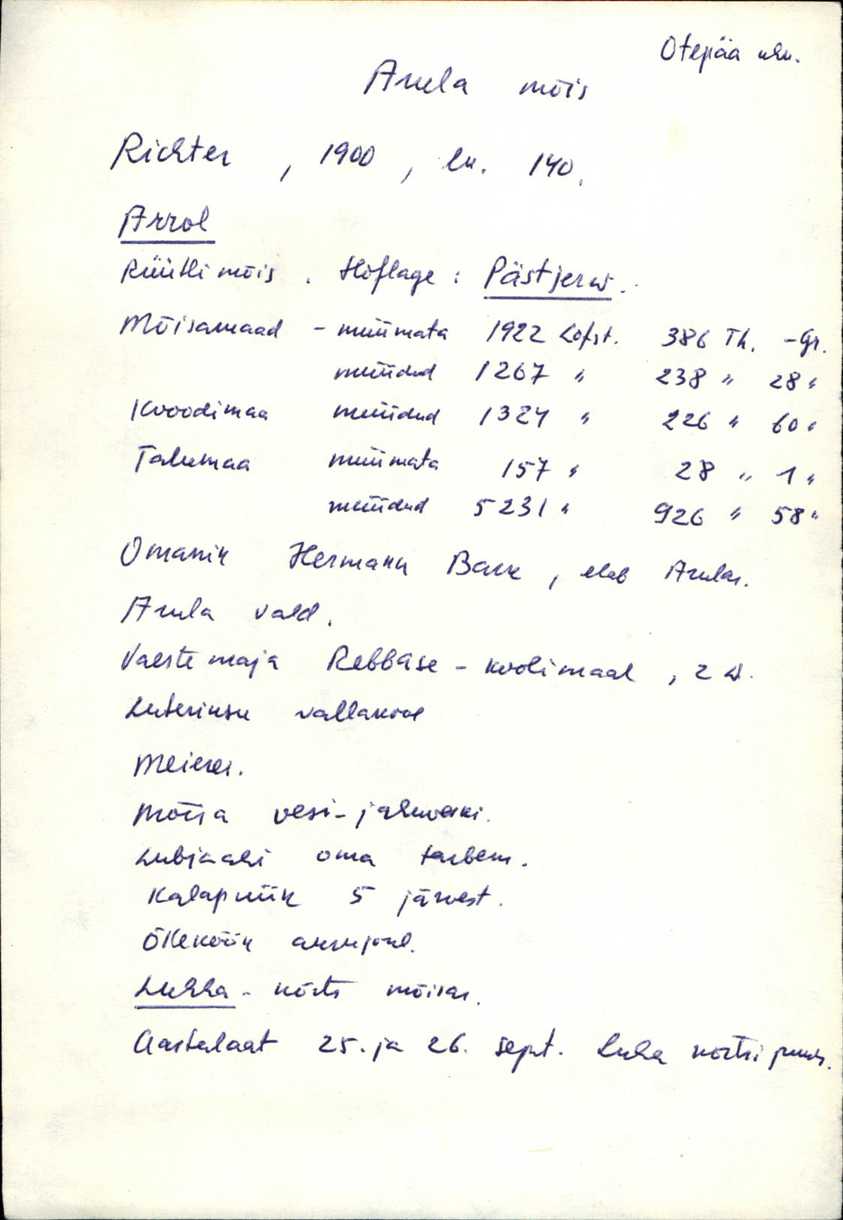 Otepää khn.
Arula mõis
Richter, 1900, lk. 140.
Arrol
Rüütlimõis. Hoflage: Pästjerw.
Mõisamaad - müümata 1922 Lofst. 386 Th. - Gr.
müüdud 1267 " 238 " 28 "
Kvoodimaa müüdud 1324 " 226 " 60 "
Talumaa müümata 157 " 28 " 1 "
müüdud 5231 " 926 " 58 "
Omanik Hermann , elab Arulas.
Arula vald.
Vaestemaja Rebbase - koolimaal, 2
Luteriusu vallakool
Meierei.
Mõisa vesi-jahuveski.
Lubjaahi oma tarbeks.
Kalapüük 5 järvest.
Õlleköök aurujõul.
Lukka - kõrts mõisas.
Aastalaat 25. ja 26. sept. Luka kõrtsi juures.